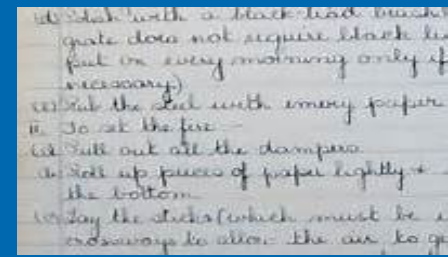 (d) Polish with a black lead brush
grate does not require black le
put on every morning only if
necessary)
(e) Rub the steel with emery paper
ii. To set the fire
(a) Pull out all the dampers
(b) Roll up pieces of paper lightly +
the bottom
(c) Lay the sticks (which must be
crossways to allow the air to ge